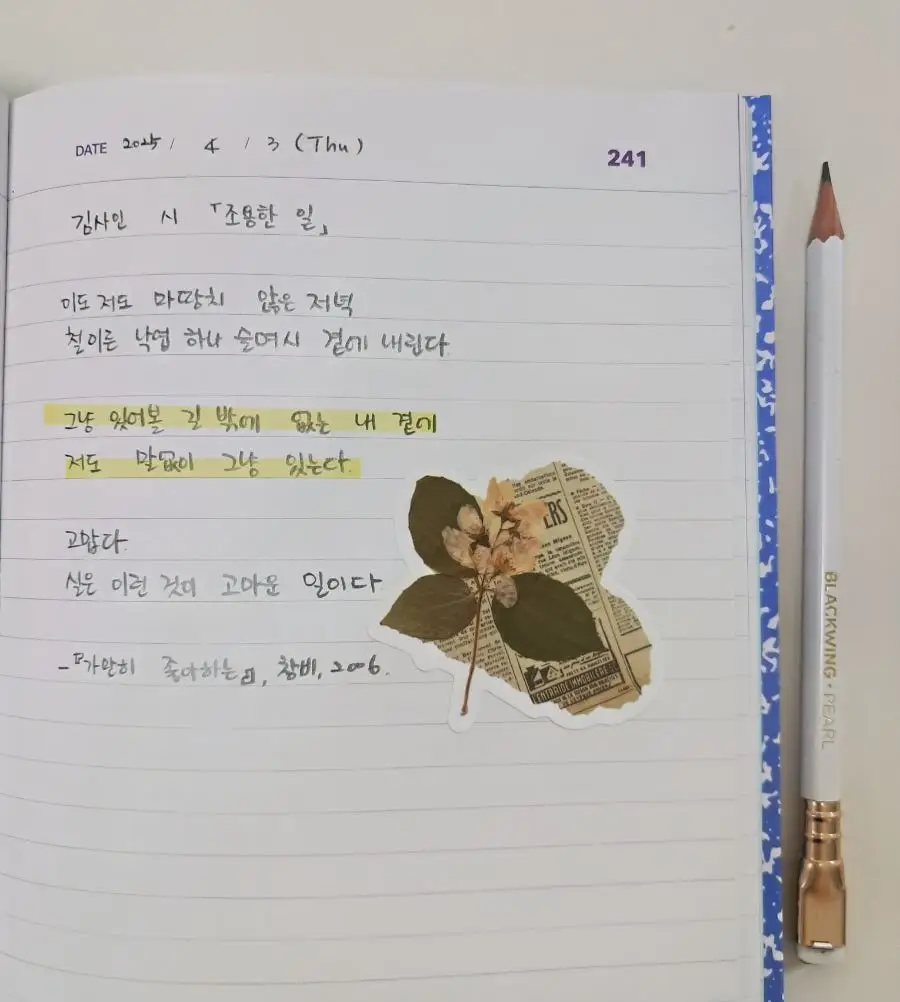 DATE 2025 / 4 / 3 (Thu)
241
김사인 시 「조용한 일」
이도 저도 마땅치 않은 저녁
철이른 낙엽 하나 슬며시 곁에 내린다
그냥 있어볼 길 밖에 없는 내 곁에
저도 말없이 그냥 있는다.
고맙다.
실은 이런 것이 고마운 일이다
-『가만히 좋아하는』, 창비, 2006.
ERS
BLACKWING • PEARL